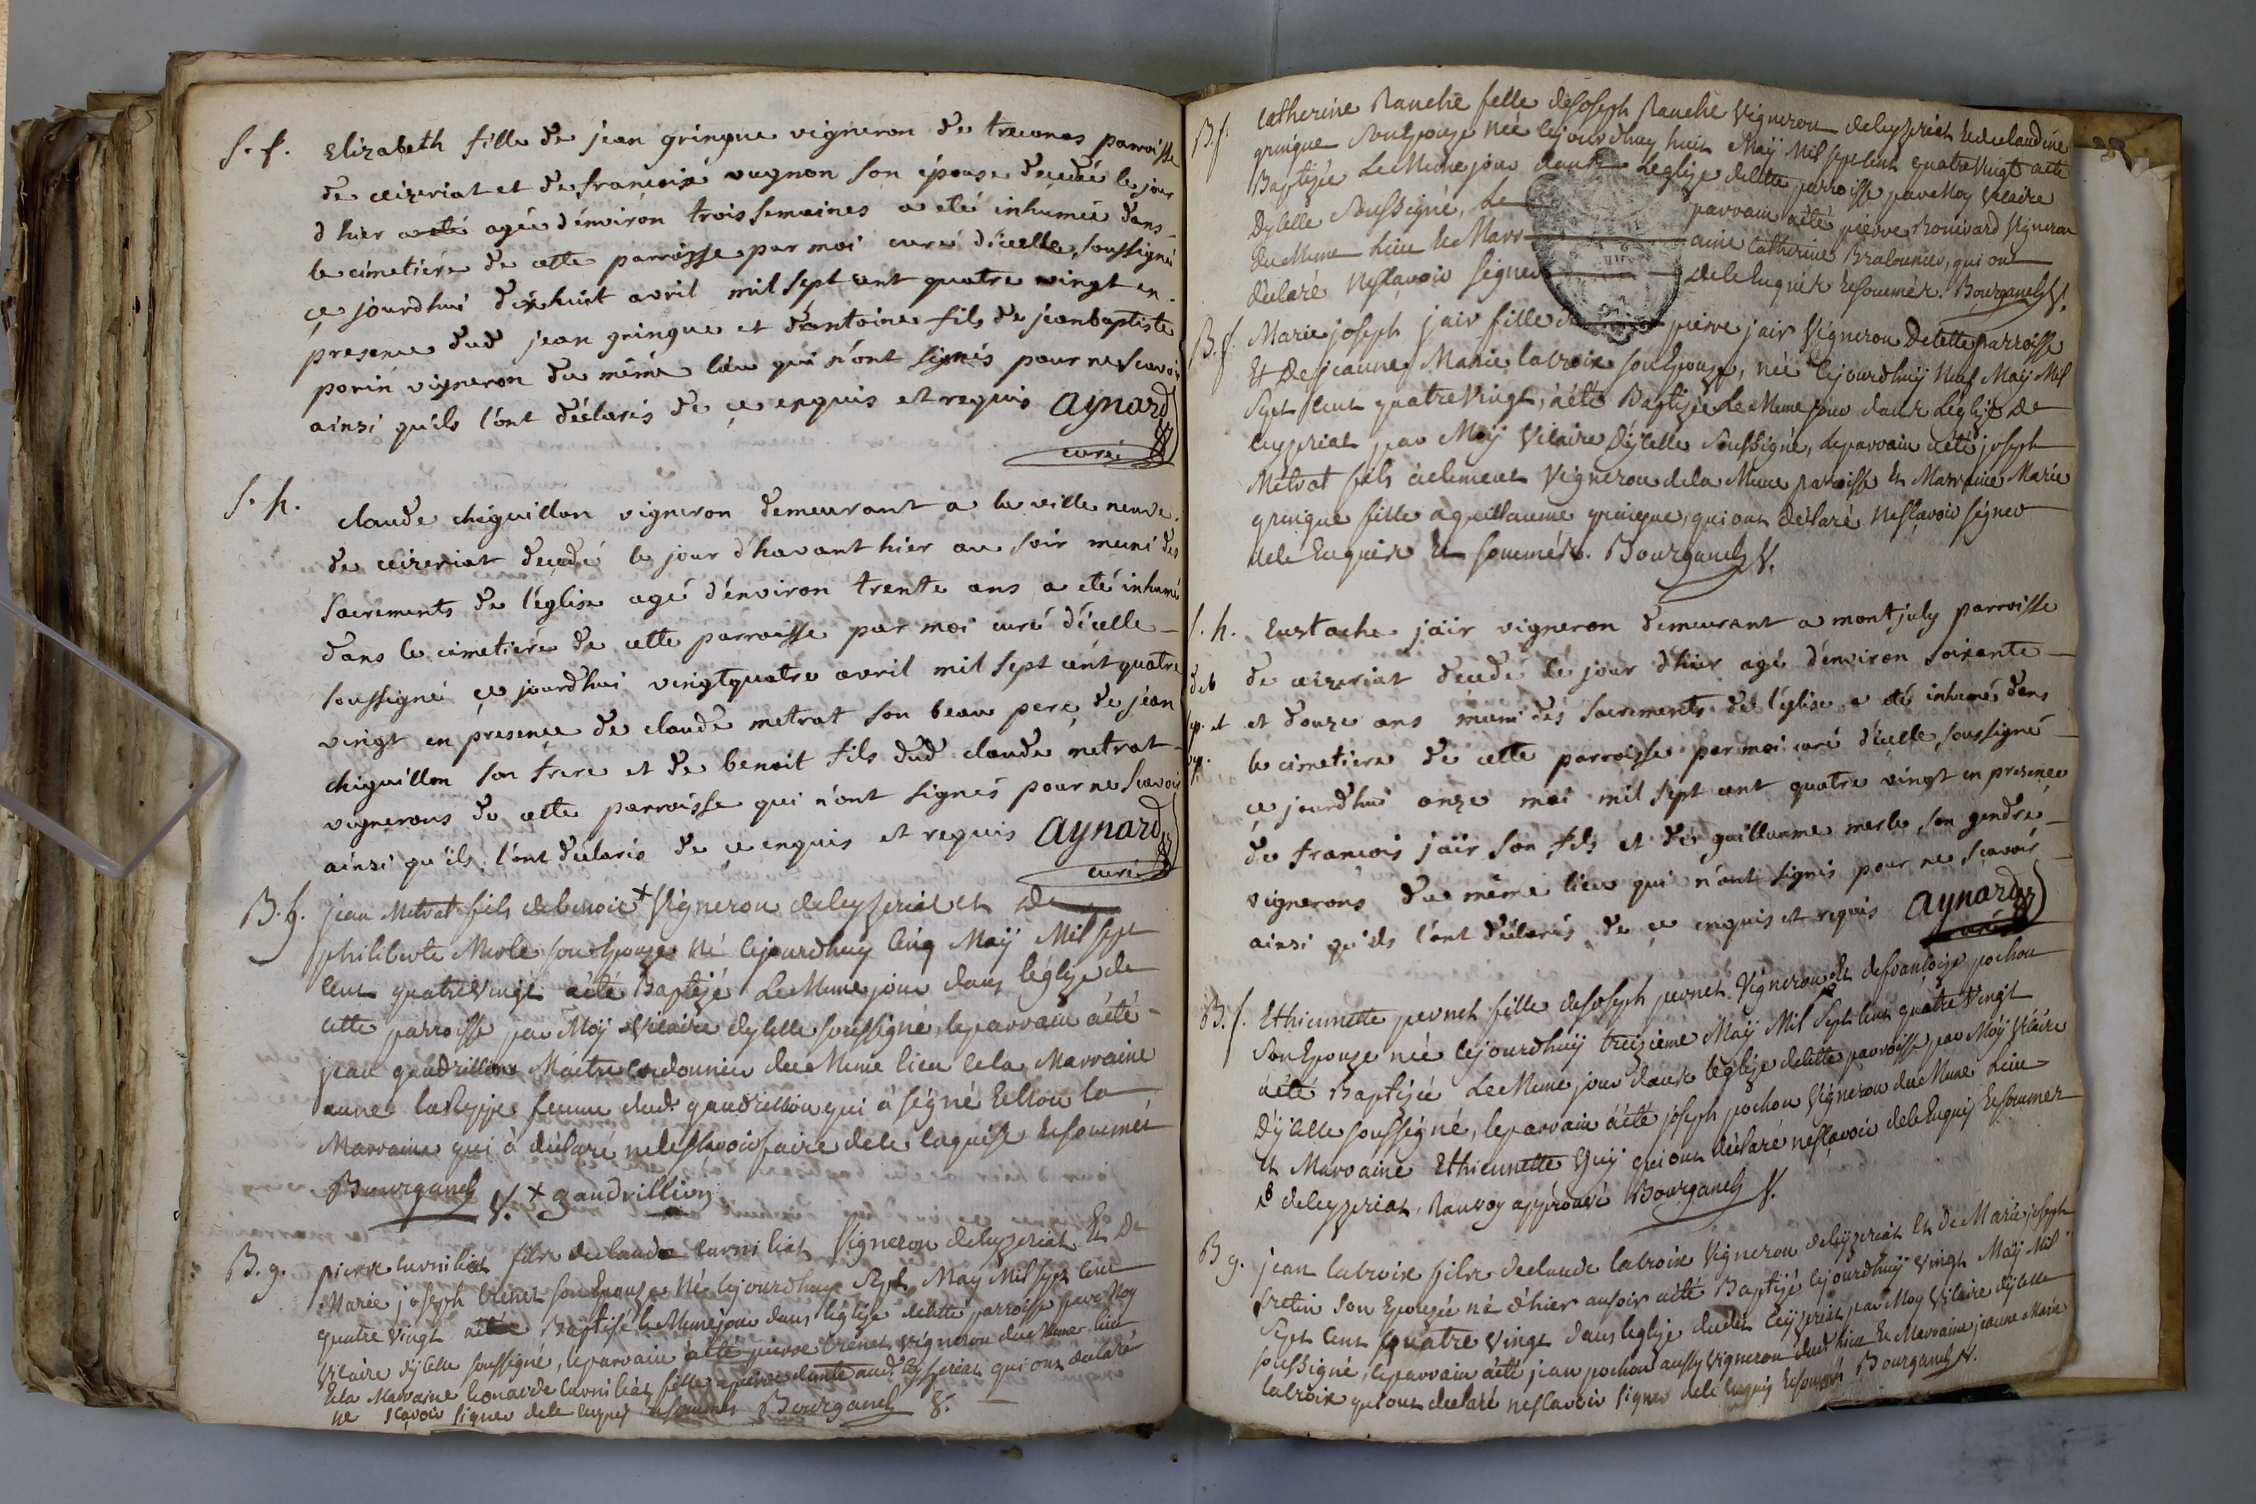 S. f. Elizabeth fille de jean gringue vigneron de treconas parroisse
de ceizeriat et de francoise vugnon son épouse decedé le jour
d hier agée d'environ trois semaines a eté inhumée dans
le cimetiére de cette parroisse par moi curé d'icelle, soussigné
ce jourdhui dixhuit avril mil sept cent quatre vingt en
presence dud jean gringue et d'antoine fils de jeanbaptiste
porin vigneron du même lieu qui n'ont signés pour ne scavoir
ainsi qu'ils l'ont déclarés de ce enquis et requis Aynard
curé
S. h. claude chiguillon vigneron demeurant a la ville neuve
de ceizeriat decedé le jour d'havant hier au soir muni des
sacrements de l'église agé d'environ trente ans a eté inhumé
dans le cimetiére de cette parroisse par moi curé d'icelle
soussigné ce jourdhui vingtquatre avril mil sept cent quatre
vingt en presence de claude metrat son beau pere, de jean
chiguillon son frere et de benoit fils dud claude metrat
vignerons de cette parroisse qui n'ont signés pour ne scavoir
ainsi qu'ils l'ont déclarés de ce enquis et requis Aynard
curé
B. g. jean Metrat fils de benoit Vigneron de ceyzeriat et de
philiberte Merle son Epouse né cejourdhuy cinq Maÿ Mil sept
cent quatrevingt aété Baptizé Le Meme jour dans léglize de
cette parroisse par Moÿ Vicaire dycelle soussigné, le parrain aété
jean gaudrillion Maitre Cordonnier du Meme lieu et la Marraine
anne femme dud. gaudrillion qui à signé et non la
Marraine qui à déclaré ne le sçavoir faire de ce enquise et sommée
Bourganel V. + gaudrillion
B. g. pierre curniliat fils de claude curniliat Vigneron de ceyzeriat Et De
Marie joseph trenet son Epouse Né cejourdhuy Sept May Mil sept cent
quatre vingt aété Baptisé le Meme jour dans léglize de cette parroisse par Moy
Vicaire dÿcelle soussigné, le parrain aété pierre trenet Vigneron du Meme lieu
Et la Marraine Leonarde curniliat fille a pierre aud. ceyzeriat qui ont declaré
ne sçavoir signer de ce enquis et sommés Bourganel V.
B. f. Catherine Ranche fille de joseph Ranche Vigneron de ceyzeriat Et de claudine
gringue son Epouse née cejourdhuy huit Maÿ Mil sept cent quatre Vingt aété
Baptizée Le Meme jour dans Léglize de cette parroisse par Moy Vicaire
Dycelle Soussigné, Le parrain aété pierre Bonivard Vigneron
du Meme Lieu et la Marraine Catherine qui ont
declaré Nesçavoir signer de ce Enquis Et sommés. Bourganel V.
B. f. Marie joseph jair fille de pierre jair Vigneron De cette parroisse
Et De jeanne Marie lacroix son Epouse, née cejourdhuÿ Neuf Maÿ Mil
Sept Cent quatre Vingt, aété Baptizée Le Meme jour dans Léglize De
ceyzeriat par Moÿ Vicaire Dÿcelle Soussigné, le parrain aété joseph
Métrat fils aclement Vigneron de la Meme parroisse Et Marraine Marie
gringue fille aguillaume gringue, qui ont déclaré Nesçavoir signer
de ce Enquis Et sommés. Bourganel V.
S. h. Eustache jaïr vigneron demeurant a montjuly parroisse
de ceizeriat decedé le jour d'hier agé d'environ soixante
et douze ans muni des sacrements de l'église a eté inhumé dans
le cimetiere de cette parroisse par moi curé d'icelle, soussigné
ce jourdhui onze mai mil sept cent quatre vingt en presence
de francois jaïr son fils et de guillaume merle son gendre
vignerons du même lieu qui n'ont signés pour ne scavoir
ainsi qu'ils l'ont déclarés de ce enquis et requis Aynard
curé
B. f. Ethiennette pernet fille de joseph pernet Vigneron Et de francoise pochon
Son Epouse née cejourdhuÿ treizieme Maÿ Mil Sept Cent quatre Vingt
aété Baptizée Le Meme jour dans léglize de cette parroisse par Moÿ Vicaire
Dÿcelle soussigné, le parrain aété joseph pochon Vigneron du Meme Lieu
Et Marraine Ethiennette qui ont déclaré nesçavoir de ce Enquis Et sommés
de ceyzeriat, Renvoy approuvé Bourganel V.
B g. jean lacroix fils de claude lacroix Vigneron de ceÿzeriat Et de Marie joseph
fretin son Epouze né d'hier ausoir aété Baptizé cejourdhuÿ vingt Maÿ Mil
Sept Cent quatre Vingt dans leglize dudit ceÿzeriat par Moy Vicaire dÿcelle
soussigné, le parrain aété jean pochon aussy Vigneron dud lieu Et Marraine jeanne Marie
lacroix qui ont declaré nesçavoir signer de ce Enquis Et sommés Bourganel V.